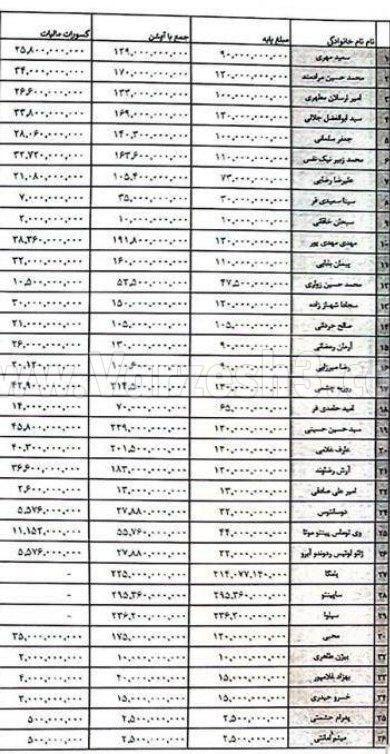 نام نام خانوادگی	مبلغ پایه	جمع با آپشن	کسورات مالیات
۱	سعید مهری	۹۰,۰۰۰,۰۰۰,۰۰۰	۱۲۹,۰۰۰,۰۰۰,۰۰۰	۲۵,۸۰۰,۰۰۰,۰۰۰
محمد حسین مرادمند	۱۲۰,۰۰۰,۰۰۰,۰۰۰	۱۷۰,۰۰۰,۰۰۰,۰۰۰	۳۴,۰۰۰,۰۰۰,۰۰۰
امیر ارسلان مطهری	۱۰۰,۰۰۰,۰۰۰,۰۰۰	۱۳۳,۰۰۰,۰۰۰,۰۰۰	۲۶,۶۰۰,۰۰۰,۰۰۰
سید ابوالفضل جلالی	۱۳۰,۰۰۰,۰۰۰,۰۰۰	۱۶۹,۰۰۰,۰۰۰,۰۰۰	۳۳,۸۰۰,۰۰۰,۰۰۰
جعفر سلمانی	۱۰۰,۰۰۰,۰۰۰,۰۰۰	۱۴۰,۳۰۰,۰۰۰,۰۰۰	۲۸,۰۶۰,۰۰۰,۰۰۰
محمد زبیر نیک نفس	۱۱۰,۰۰۰,۰۰۰,۰۰۰	۱۶۳,۶۰۰,۰۰۰,۰۰۰	۳۲,۷۲۰,۰۰۰,۰۰۰
علیرضا رضایی	۷۳,۰۰۰,۰۰۰,۰۰۰	۱۰۵,۴۰۰,۰۰۰,۰۰۰	۲۱,۰۸۰,۰۰۰,۰۰۰
سینا سعیدی فر	۳۰,۰۰۰,۰۰۰,۰۰۰	۳۵,۰۰۰,۰۰۰,۰۰۰	۷,۰۰۰,۰۰۰,۰۰۰
سبحان خاقانی	۱۰,۰۰۰,۰۰۰,۰۰۰	۱۰,۰۰۰,۰۰۰,۰۰۰	۲,۰۰۰,۰۰۰,۰۰۰
مهدی مهدی پور	۱۳۰,۰۰۰,۰۰۰,۰۰۰	۱۹۱,۸۰۰,۰۰۰,۰۰۰	۳۸,۳۶۰,۰۰۰,۰۰۰
۱۱	پیمان بابایی	۱۱۰,۰۰۰,۰۰۰,۰۰۰	۱۶۰,۰۰۰,۰۰۰,۰۰۰	۳۲,۰۰۰,۰۰۰,۰۰۰
محمد حسین زواری	۴۷,۵۰۰,۰۰۰,۰۰۰	۵۲,۵۰۰,۰۰۰,۰۰۰	۱۰,۵۰۰,۰۰۰,۰۰۰
شهباز زاده	۱۲۰,۰۰۰,۰۰۰,۰۰۰	۱۵۰,۰۰۰,۰۰۰,۰۰۰	۳۰,۰۰۰,۰۰۰,۰۰۰
صالح حردانی	۱۰۵,۰۰۰,۰۰۰,۰۰۰	۱۰۵,۰۰۰,۰۰۰,۰۰۰	۲۱,۰۰۰,۰۰۰,۰۰۰
۱۵	آرمان رمضانی	۹۰,۰۰۰,۰۰۰,۰۰۰	۱۳۰,۰۰۰,۰۰۰,۰۰۰	۲۶,۰۰۰,۰۰۰,۰۰۰
۱۶	رضا میرزایی
۱۷	روزبه چشمی	۱۳۰,۰۰۰,۰۰۰,۰۰۰	۲۱۴,۵۰۰,۰۰۰,۰۰۰	۴۲,۹۰۰,۰۰۰,۰۰۰
۱۸	امید حامدی فر	۶۵,۰۰۰,۰۰۰,۰۰۰	۷۰,۰۰۰,۰۰۰,۰۰۰	۱۴,۰۰۰,۰۰۰,۰۰۰
۱۹	سید حسین حسینی	۱۳۰,۰۰۰,۰۰۰,۰۰۰	۲۲۹,۰۰۰,۰۰۰,۰۰۰	۴۵,۸۰۰,۰۰۰,۰۰۰
۲۰	عارف غلامی	۱۳۰,۰۰۰,۰۰۰,۰۰۰	۲۰۱,۵۰۰,۰۰۰,۰۰۰	۴۰,۳۰۰,۰۰۰,۰۰۰
آرش رضاوند	۱۲۰,۰۰۰,۰۰۰,۰۰۰	۱۸۳,۰۰۰,۰۰۰,۰۰۰	۳۶,۶۰۰,۰۰۰,۰۰۰
امیر علی صادقی	۱۳,۰۰۰,۰۰۰,۰۰۰	۱۳,۰۰۰,۰۰۰,۰۰۰	۲,۶۰۰,۰۰۰,۰۰۰
دوسانتوس	۲۲,۰۰۰,۰۰۰,۰۰۰	۲۷,۸۸۰,۰۰۰,۰۰۰	۵,۵۷۶,۰۰۰,۰۰۰
۲۵	وی توماس پینتو موتا	۴۴,۰۰۰,۰۰۰,۰۰۰	۵۵,۷۶۰,۰۰۰,۰۰۰	۱۱,۱۵۲,۰۰۰,۰۰۰
ژائو لوئیس ردوندو آبرو	۲۲,۰۰۰,۰۰۰,۰۰۰	۲۷,۸۸۰,۰۰۰,۰۰۰	۵,۵۷۶,۰۰۰,۰۰۰
یامگا	۲۱۴,۰۷۷,۱۳۰,۰۰۰	۲۲۵,۰۰۰,۰۰۰,۰۰۰	-
۲۸	ساپینتو	۲۹۵,۳۶۰,۰۰۰,۰۰۰	۲۹۵,۳۶۰,۰۰۰,۰۰۰	-
۲۹	سیلوا	۲۳۶,۲۰۰,۰۰۰,۰۰۰	۲۳۶,۲۰۰,۰۰۰,۰۰۰	-
محبی	۱۲۰,۰۰۰,۰۰۰,۰۰۰	۱۷۵,۰۰۰,۰۰۰,۰۰۰	۳۵,۰۰۰,۰۰۰,۰۰۰
۳۲	بیژن طاهری	۱۰,۰۰۰,۰۰۰,۰۰۰	۱۰,۰۰۰,۰۰۰,۰۰۰	۲,۰۰۰,۰۰۰,۰۰۰
۳۳	بهزاد غلامپور	۱۵,۰۰۰,۰۰۰,۰۰۰	۲۰,۰۰۰,۰۰۰,۰۰۰	۴,۰۰۰,۰۰۰,۰۰۰
۳۴	خسرو حیدری	۱۵,۰۰۰,۰۰۰,۰۰۰	۱۵,۰۰۰,۰۰۰,۰۰۰	۳,۰۰۰,۰۰۰,۰۰۰
۳۵	پدرام حشمتی	۲,۵۰۰,۰۰۰,۰۰۰	۲,۵۰۰,۰۰۰,۰۰۰	۵۰۰,۰۰۰,۰۰۰
۳۶	میثم امانتی	۲,۵۰۰,۰۰۰,۰۰۰	۲,۵۰۰,۰۰۰,۰۰۰	۵۰۰,۰۰۰,۰۰۰